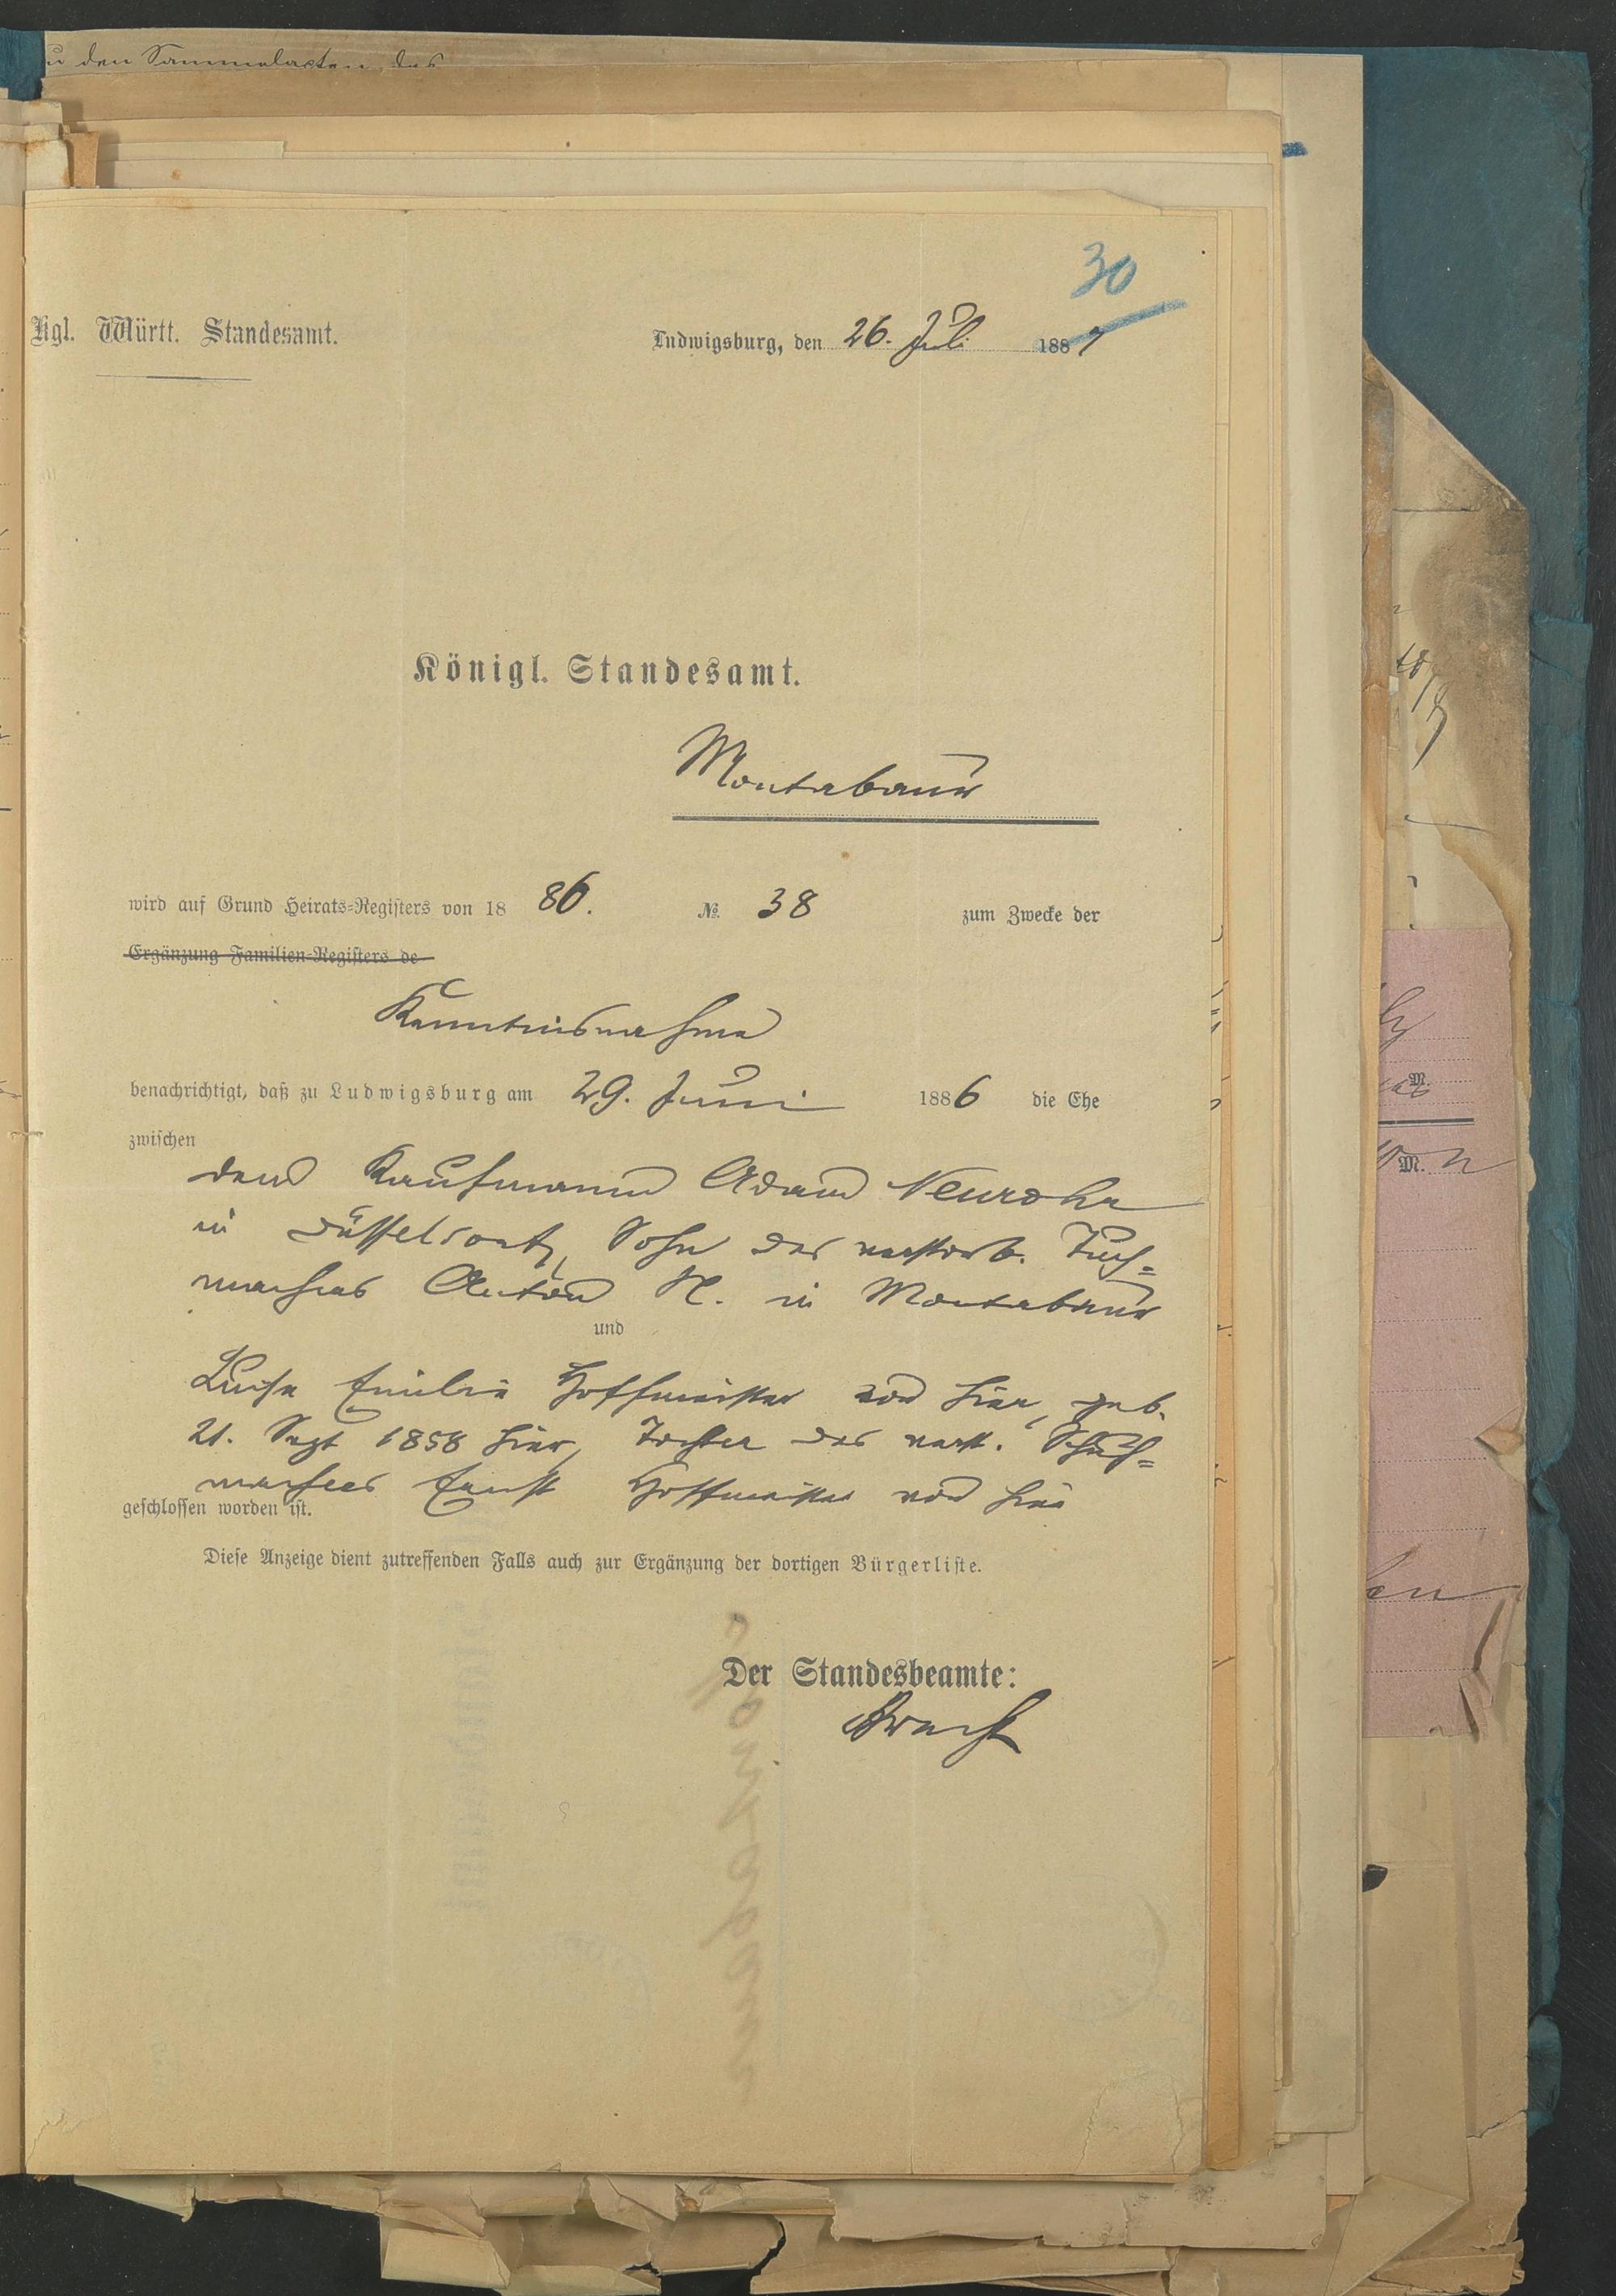 u den Sammelacten des
30
Kgl. Württ. Standesamt.
Ludwigsburg, den 26. Juli 1887
Königl. Standesamt.
Montabaur
wird auf Grund Heirats=Registers von 18 86. № 38 zum Zwecke der
Ergänzung Familien=Registers de
Kenntnisnahme
benachrichtigt, daß zu Ludwigsburg am 29. Juni 1886 die Ehe
zwischen
dem Kaufmann Adam Neurohr
in Düsseldorf, Sohn des verstorb. Tuch=
machers Anton N. in Montabaur
und
Luise Emilie Hoffmeister von hier, geb.
21. Sept 1858 hier, Tochter des verst. Schuh=
machers Ernst Hoffmeister von hier
geschlossen worden ist.
Diese Anzeige dient zutreffenden Falls auch zur Ergänzung der dortigen Bürgerliste.
Der Standesbeamte: